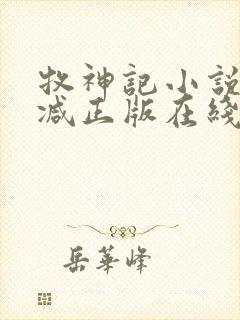 牧神記小說
减正版在綫
岳華峰